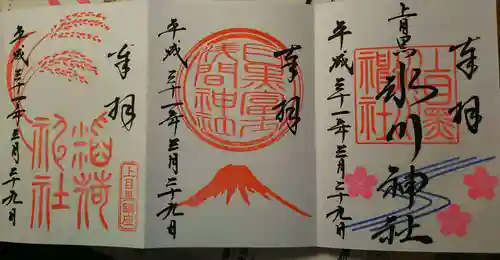 上目黒
氷川神社
奉拝
上目黒氷川神社
平成三十一年三月二十九日
奉拝
目黒富士浅間神社
平成三十一年三月二十九日
奉拝
稲荷神社
上目黒鎮座
平成三十一年三月二十九日